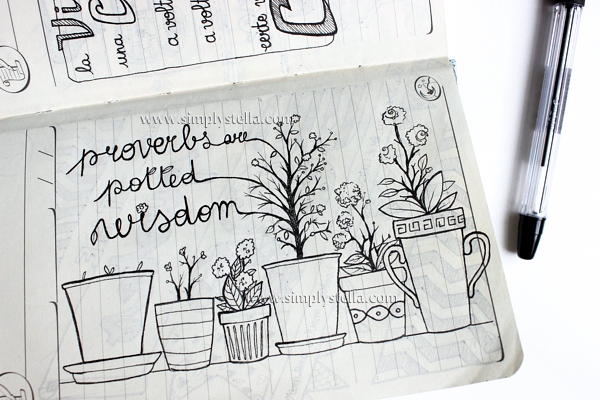 la Vi
una
a volt
a volt
certe v
www.simplystella.com
proverbs are
potted
wisdom
www.simplystella.com